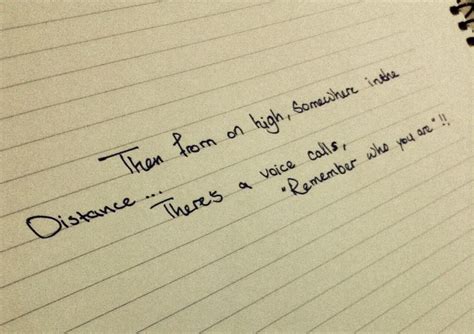 Then from on high, Somewhere in the
Distance...
There's a voice calls,
"Remember who you are"!!